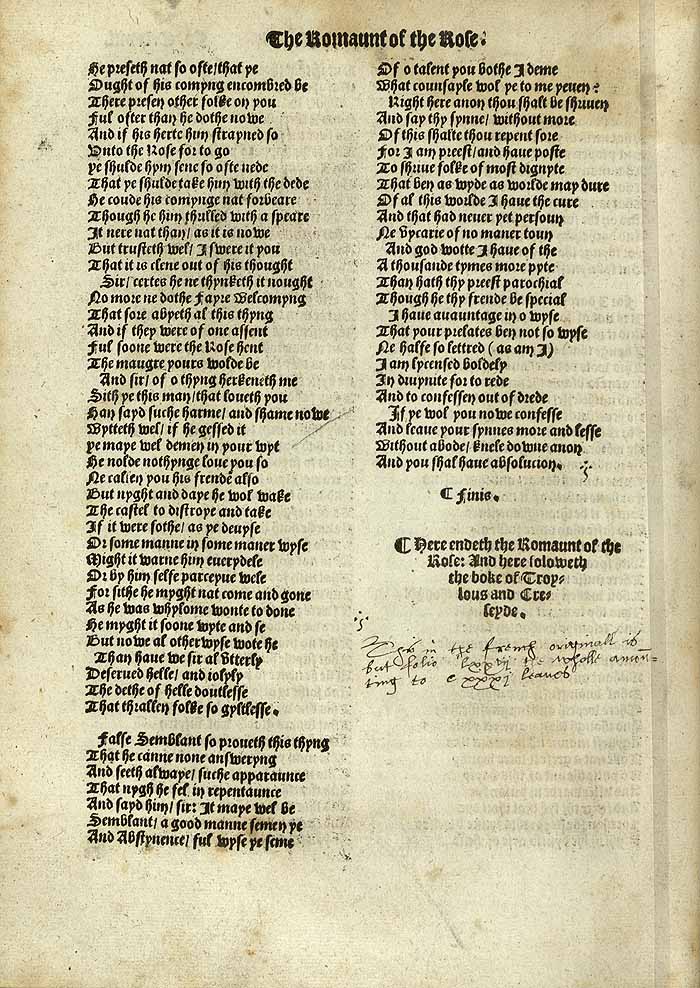 The Romaunt of the Rose.
He preseth nat so ofte/that ye
Ought of his comyng encombred be
There presen other folke on you
Ful ofter than he dothe nowe
And if his herte hym strayned so
Unto the Rose for to go
ye shulde hym sene so ofte nede
That ye shulde take hym with the dede
He coude his comynge nat forbeare
Though he him thrilled with a speare
It nere nat than/ as it is nowe
But trusteth wel/ I swere it you
That it is clene out of his thought
Sir/ certes he ne thynketh it nought
No more ne dothe Fayre Welcomyng
That sore abyeth al this thyng
And if they were of one assent
Ful soone were the Rose hent
The maugre yours wolde be
And sir/ of o thyng herkeneth me
Sith ye this man/that loueth you
Han sayd suche harme/ and shame nowe
Wytteth wel/ if he gessed it
ye maye wel demen in your wyt
He nolde nothynge loue you so
Ne callen you his frende also
But nyght and daye he wol wake
The castel to distroye and take
If it were sothe/ as ye deuyse
Or some manne in some maner wyse
Might it warne him euerydele
Or by him selfe parceyue wele
For sithe he myght nat come and gone
As he was whylome wonte to done
He myght it soone wyte and se
But nowe al otherwyse wote he
Than haue we sir al vtterly
Deserued helle/ and iolyly
The dethe of helle doutlesse
That thrallen folke so gyltlesse.
False Semblant so proueth this thyng
That he canne none answeryng
And seeth alwaye/ suche apparaunce
That nygh he fel in repentaunce
And sayd him/ sir: It maye wel be
Semblant/ a good manne semen ye
And Abstynence/ ful wyse ye seme
Of o talent you bothe I deme
What counsayle wol ye to me yeuen?
Right here anon thou shalt be shriuen
And say thy synne/ without more
Of this shalte thou repent sore
For I am preest/and haue poste
To shriue folke of most dignyte
That ben as wyde as worlde may dure
Of al this worlde I haue the cure
And that had neuer yet persoun
Ne vycarie of no maner toun
And god wotte I haue of the
A thousande tymes more pyte
Than hath thy preest parochial
Though he thy frende be special
I haue auauntage in o wyse
That your prelates ben not so wyse
Ne halfe so lettred (as am I)
I am lycensed boldely
In diuynite for to rede
And to confessen out of drede
If ye wol you nowe confesse
And leaue your synnes more and lesse
Without abode/ knele downe anon
And you shal haue absolucion.
¶ Finis.
¶ Here endeth the Romaunt of the
Rose: And here foloweth
the boke of Troy-
lous and Cre-
seyde.
This in the french originall is
but folio lxxvij the wholle amon-
ting to cxxxj leaves